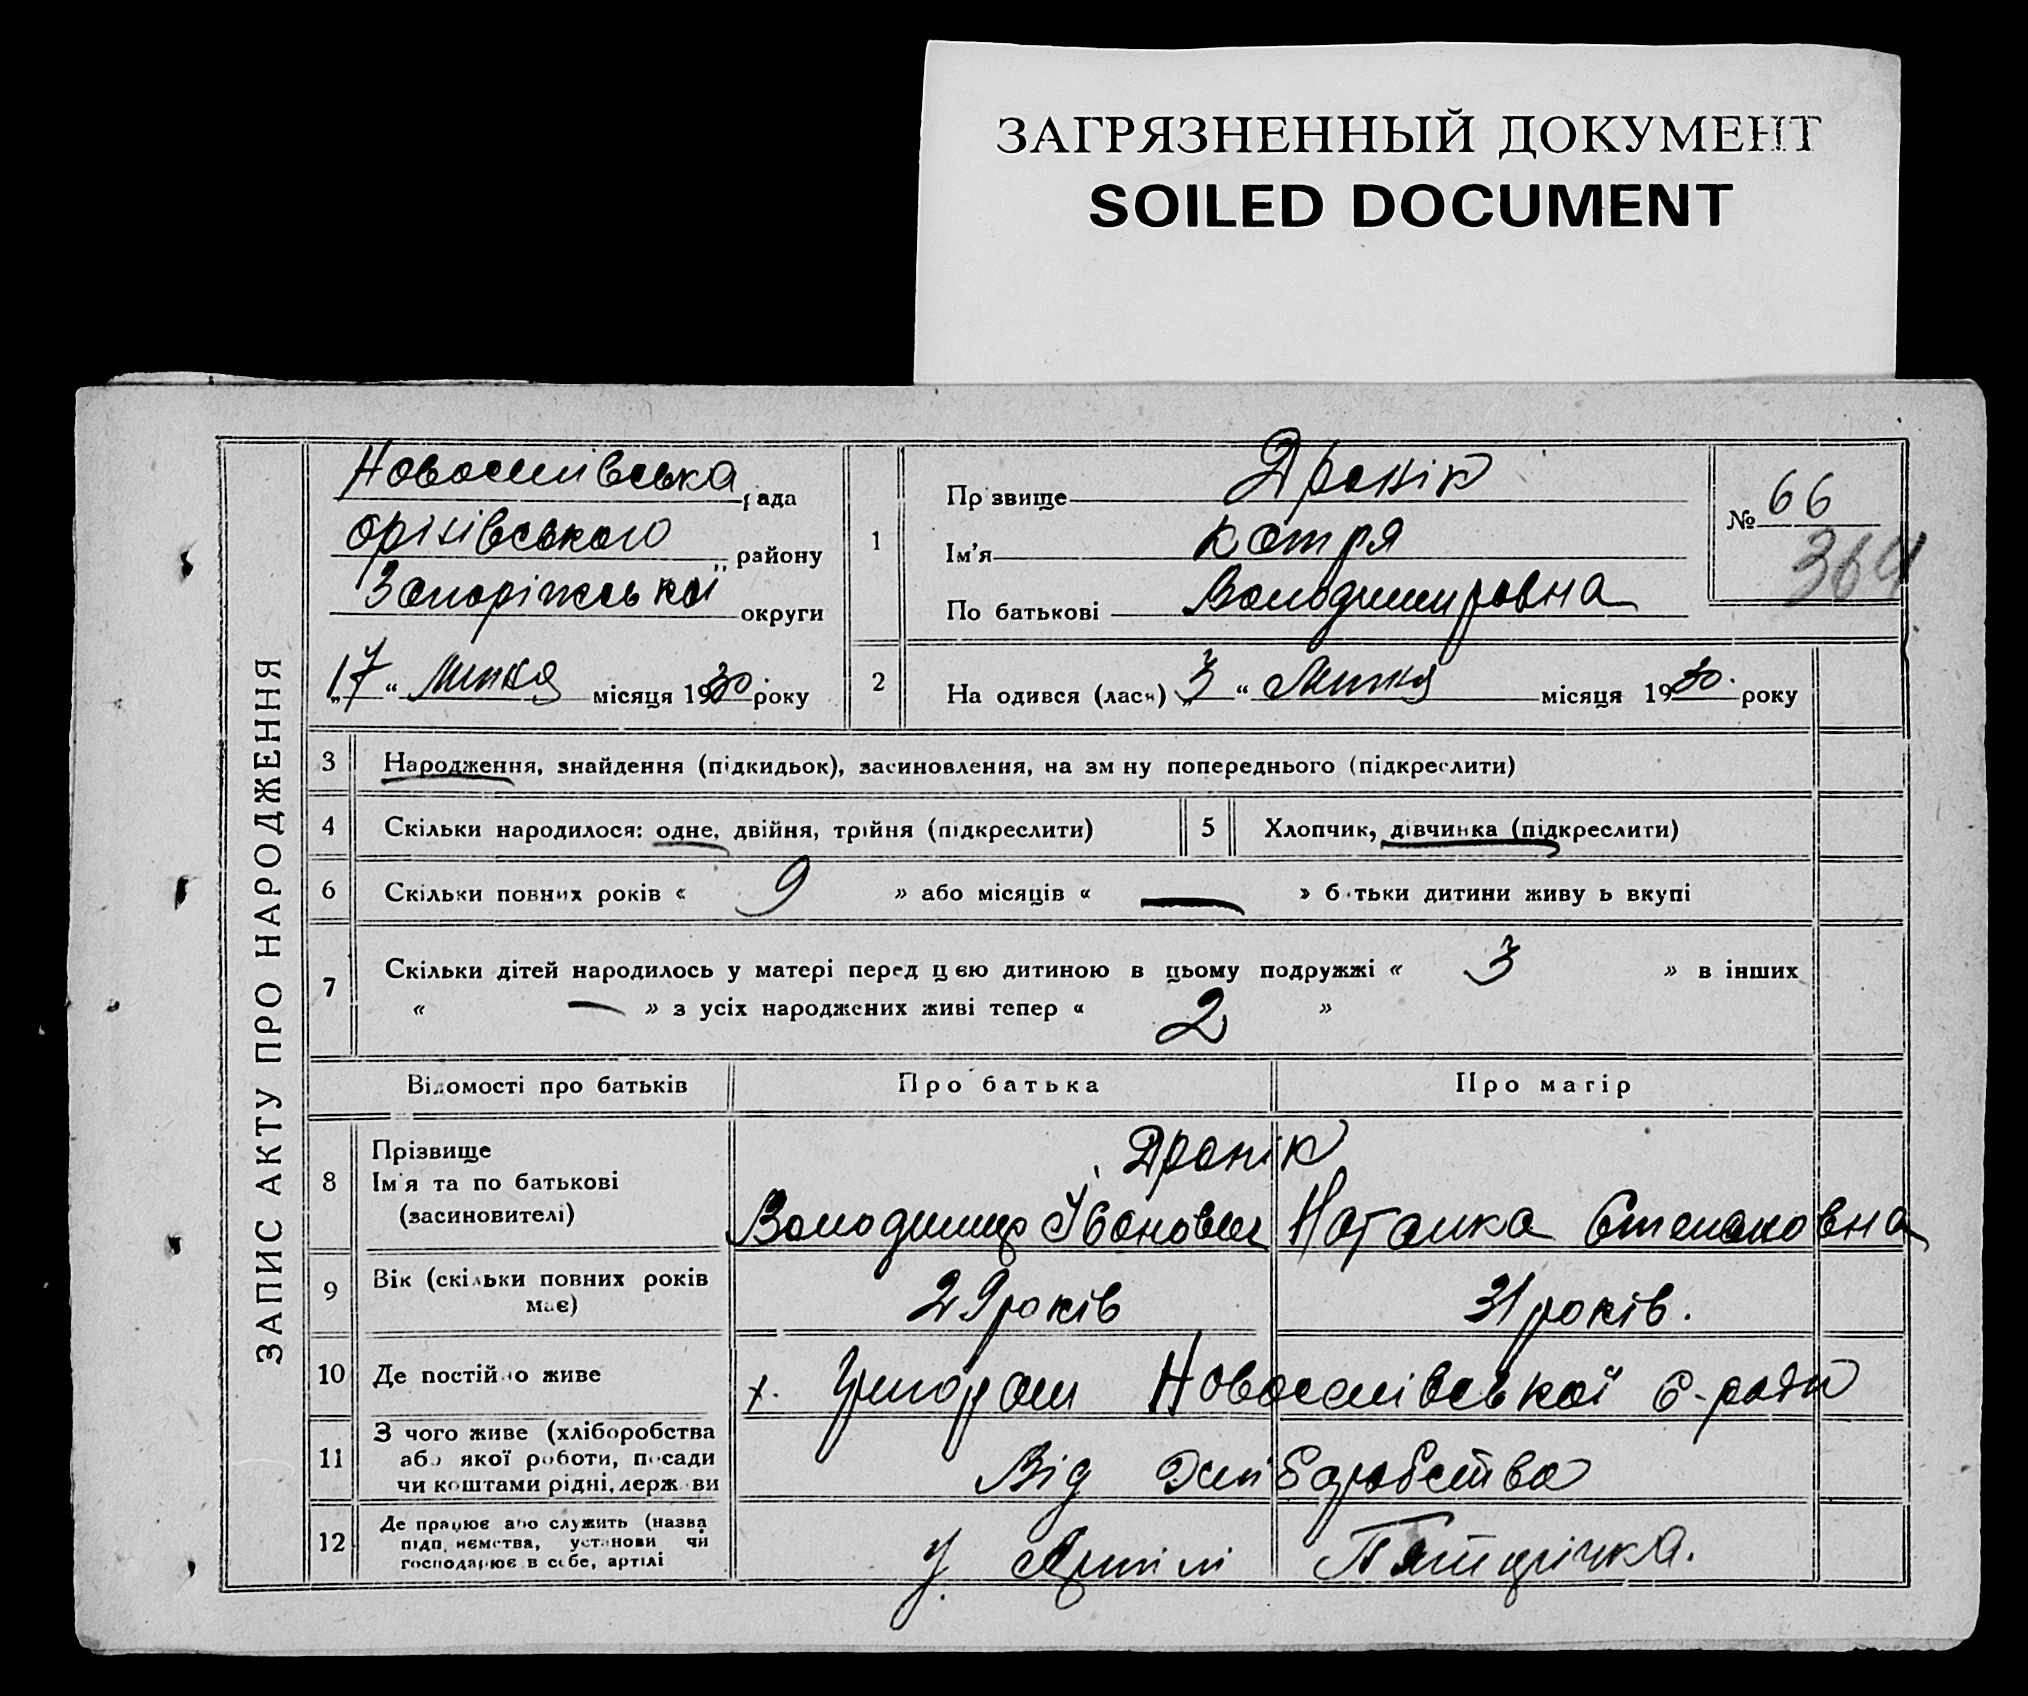 ЗАГРЯЗНЕННЫЙ ДОКУМЕНТ
SOILED DOCUMENT
ЗАПИС АКТУ ПРО НАРОДЖЕННЯ
рада
орiхiвського району
Запорiжської округи
„17“ Липня місяця 1930 року
1
Прізвище Дронiк
Ім’я Катря
По батькові Володимировна
№ 66
364
2
На одився (лась) „3“ Липня місяця 1930. року
3 Народження, знайдення (підкидьок), засиновлення, на зм ну попереднього (підкреслити)
4 Скільки народилося: одне, двійня, трійня (підкреслити)
5 Хлопчик, дівчинка (підкреслити)
6 Скільки повних років « 9 » або місяців « — » б тьки дитини живу ь вкупі
7 Скільки дітей народилось у матері перед ц єю дитиною в цьому подружжі « 3 » в інших
« — » з усіх народжених живі тепер « 2 »
Відомості про батьків Про батька Про матір
8 Прізвище
Ім’я та по батькові
(засиновителі)
Дронiк
Володимир Iванович Наталка Степановна
9 Вік (скільки повних років
має)
29 років 31 років.
10 Де постійно живе
х. Новоселiвської с-ради
11 З чого живе (хліборобства
або якої роботи, посади
чи коштами рідні, держ ви
Вiд Хлiборобства
12 Де працює або служить (назва
підп иємства, установи чи
господарює в себе, артілі
у Артiлi Пятирiчка.